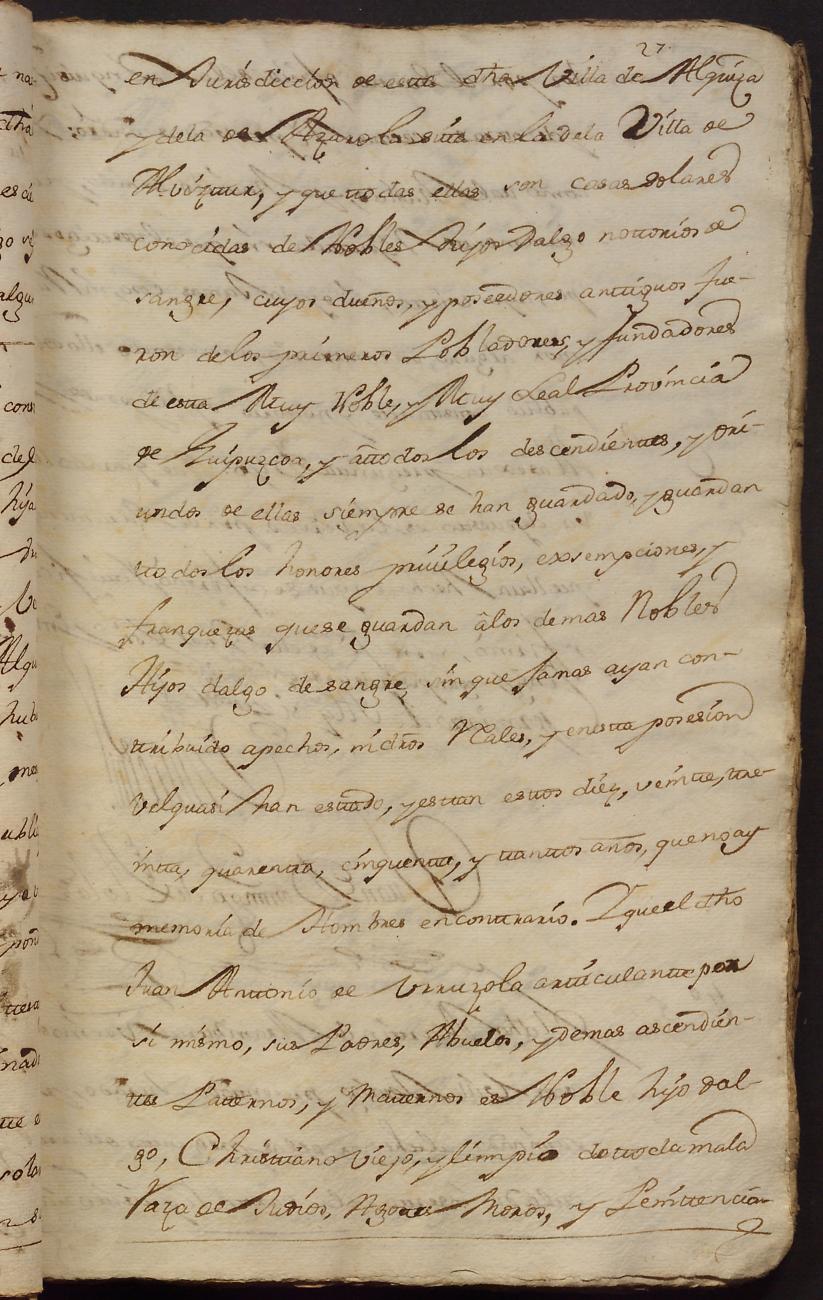 27.
en Jurisdiccion de esta dha Villa de Alquiza
y dela de Azurola sita en la dela Villa de
Albiztur, y que todas ellas son casas solares
conocidas de Nobles hijos Dalgo nottorios de
sangre, cuyos dueños, y poseedores antiguos fue-
ron delos primeros Pobladores, y fundadores
de esta Muy Noble, y Muy Leal Provincia
de Guipuzcoa, y atodos los descendientes, y ori-
undos de ellas siempre se han guardado, y guardan
todos los honores privilegios, exsempciones, y
franquezas que se guardan âlos demas Nobles
Hijos dalgo de sangre, sin que Jamas ayan con-
tribuido apechos, ni dros Rales, y en esta posesion
velquasi han estado, y estan estos diez, veinte, tre-
inta, quarenta, cinquenta, y tanttos años, que no ay
memoria de Hombres en conttrario. Y que el dho
Juan Antonio de Urruzola articulante por
sí mismo, sus Padres, Abuelos, y demas ascendien-
tes Patternos, y Matternos es Noble hijo dal-
go, Christiano Viejo, y limpio de ttoda mala
Raza de Judios, Agotes Moros, y Penitencia-